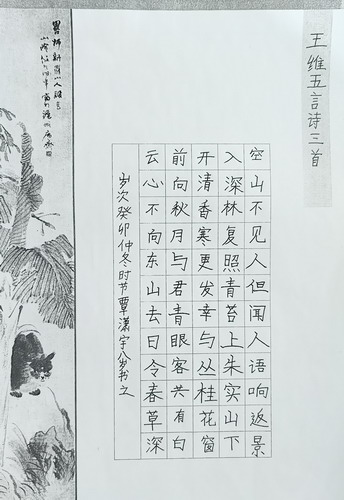 王维五言诗三首
空山不见人但闻人语响返景
入深林复照青苔上朱实山下
开清香寒更发幸与丛桂花窗
前向秋月与君青眼客共有白
云心不向东山去日令春草深
岁次癸卯仲冬时节覃潇宇八岁书之